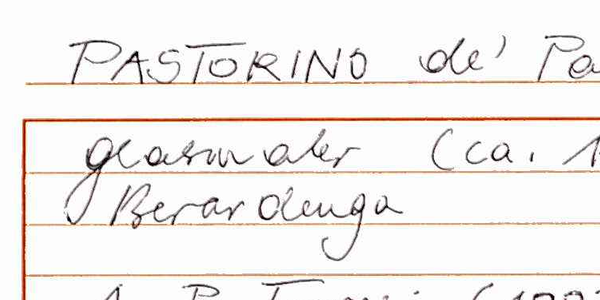 PASTORINO de' Pa
glasmaler (ca. 1
Berardenga